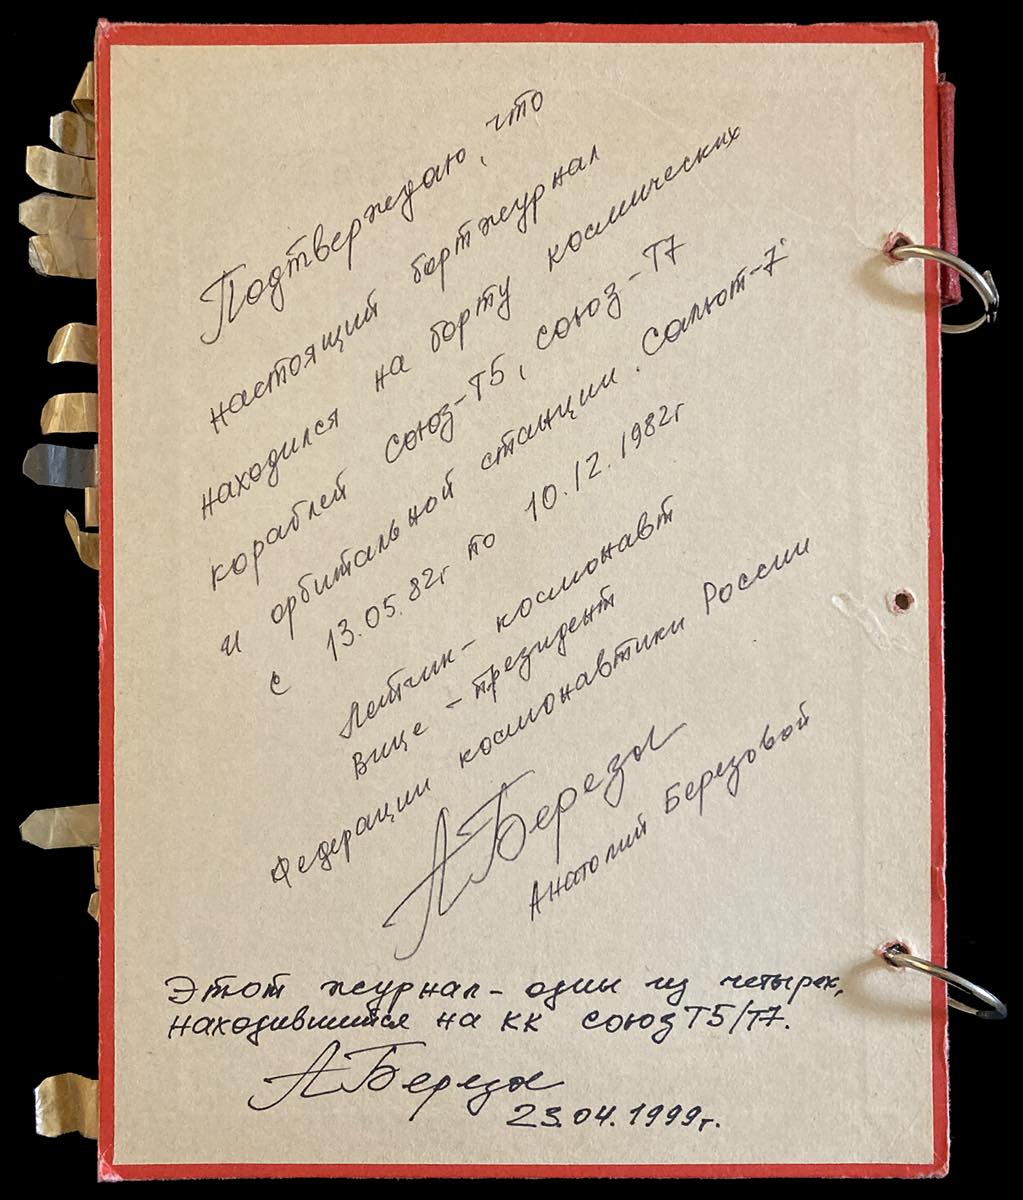 Подтверждаю, что
настоящий бортжурнал
находился на борту космических
кораблей союз-Т5, союз-Т7
и орбитальной станции. Салют-7
с 13.05.82г по 10.12.1982г
Летчик-космонавт
Вице-президент
Федерации космонавтики России
АБерезо
Анатолий Березовой
Этот журнал - один из четырех,
находившийся на КК союз Т5/Т7.
АБерезо
23.04.1999г.